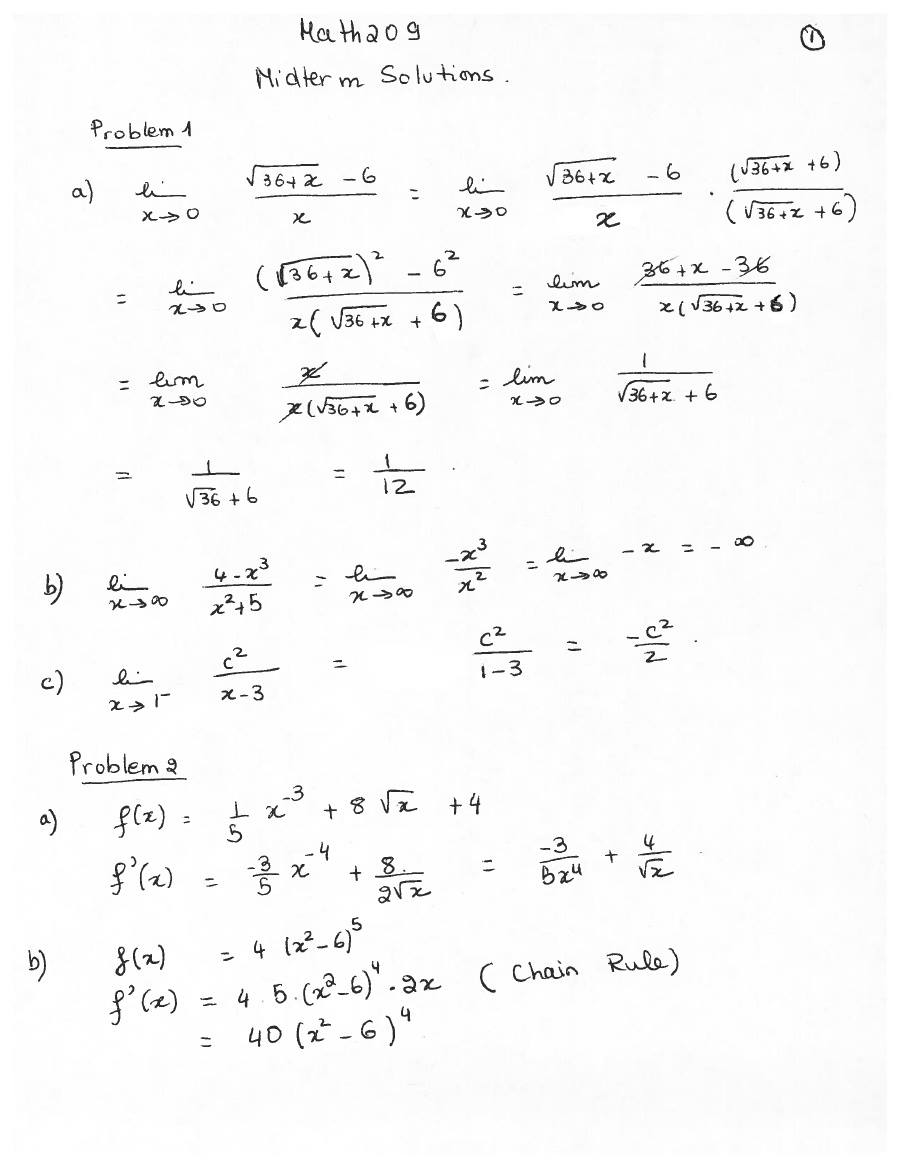 Math209
①
Midterm Solutions.
Problem 1
a) lim x→0 (√(36+x) - 6)/x = lim x→0 (√(36+x) - 6)/x · (√(36+x) + 6)/(√(36+x) + 6)
= lim x→0 ((√(36+x))² - 6²)/(x(√(36+x) + 6)) = lim x→0 (36+x-36)/(x(√(36+x) + 6))
= lim x→0 x/(x(√(36+x) + 6)) = lim x→0 1/(√(36+x) + 6)
= 1/(√36 + 6) = 1/12.
b) lim x→∞ (4-x³)/(x²+5) = lim x→∞ -x³/x² = lim x→∞ -x = -∞
c) lim x→1⁻ c²/(x-3) = c²/(1-3) = -c²/2.
Problem 2
a) f(x) = 1/5 x⁻³ + 8√x + 4
f'(x) = -3/5 x⁻⁴ + 8/(2√x) = -3/(5x⁴) + 4/√x
b) f(x) = 4 (x²-6)⁵
f'(x) = 4.5.(x²-6)⁴.2x (Chain Rule)
= 40 (x²-6)⁴